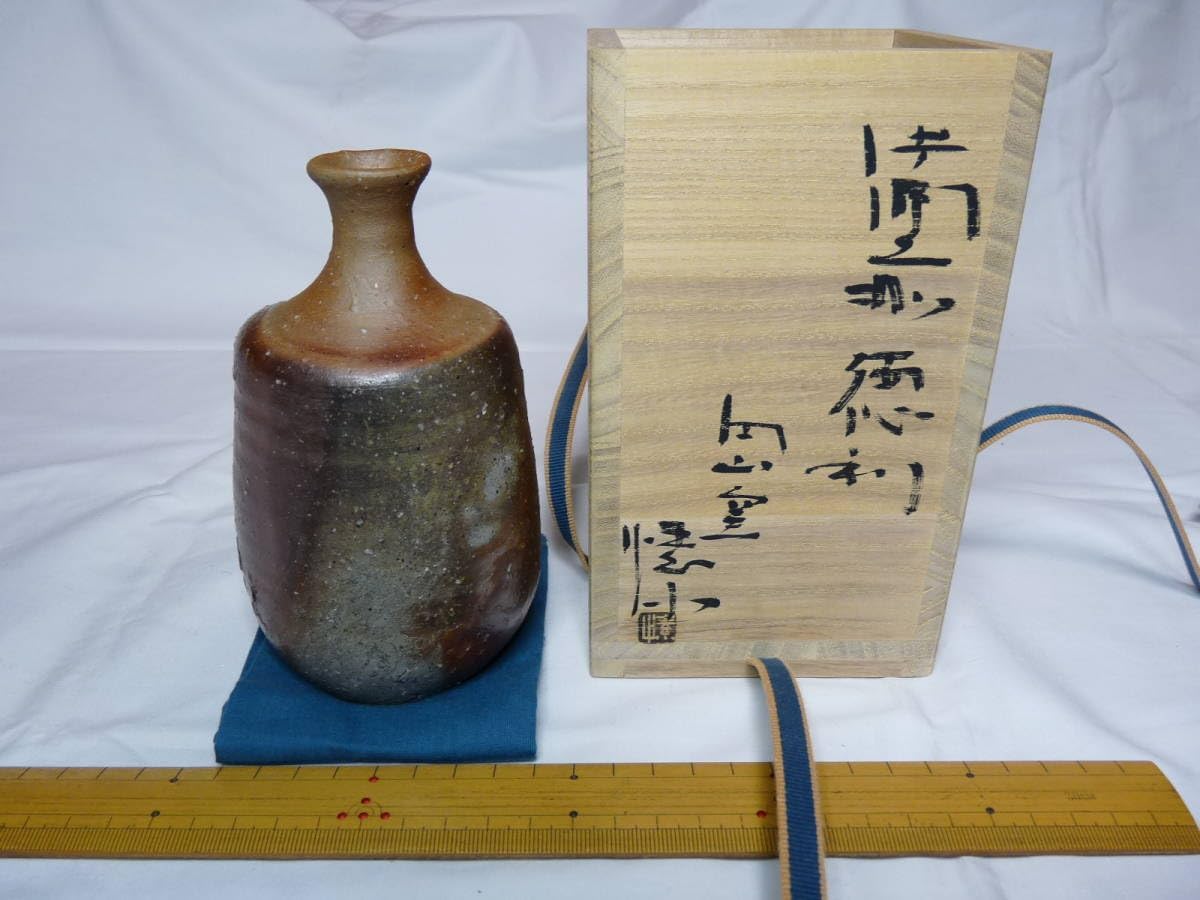 備前 徳利
向山窯